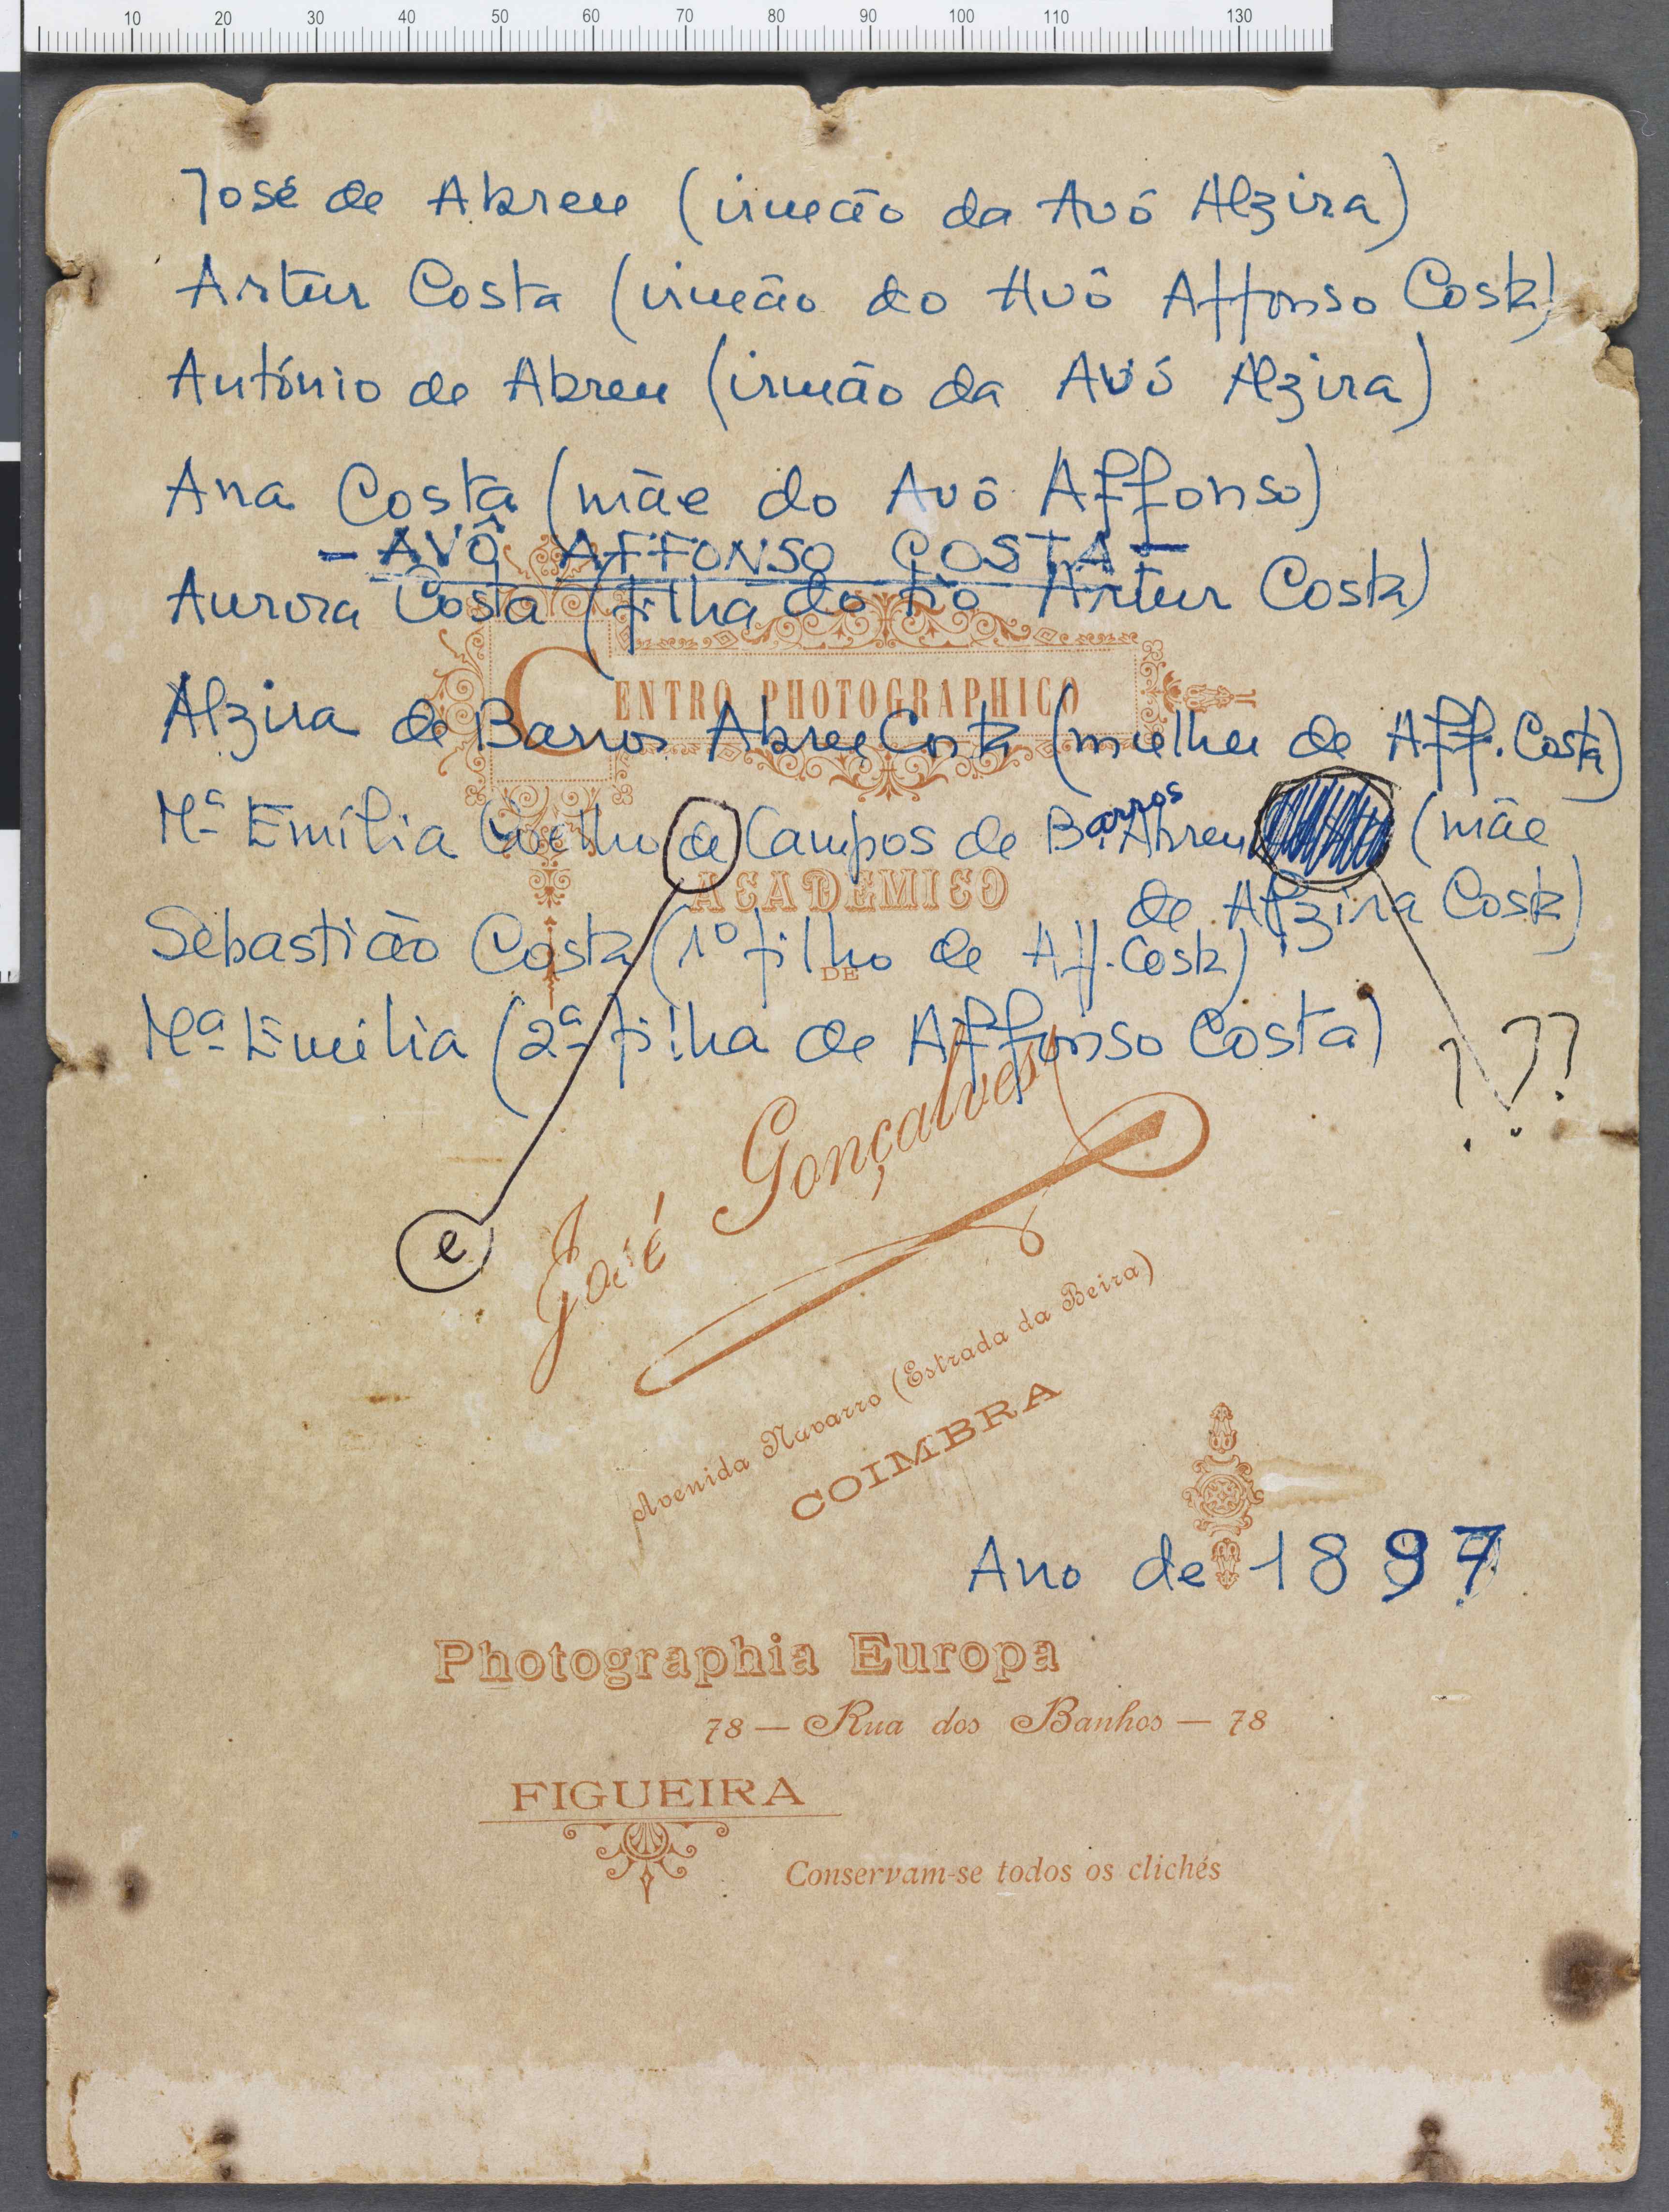 10 20 30 40 50 60 70 80 90 100 110 130
José de Abreu (irmão da Avó Alzira)
Artur Costa (irmão do Avô Affonso Costa)
António de Abreu (irmão da Avó Alzira)
Ana Costa (mãe do Avô Affonso)
- AVÔ AFFONSO COSTA -
Aurora Costa (filha do tio Artur Costa)
CENTRO PHOTOGRAPHICO
Alzira de Barros Abreu Costa (mulher de Aff. Costa)
Mª Emília Coelho de Campos de Barros Abreu (mãe
de Alzira Costa)
ACADEMICO
Sebastião Costa (1º filho de Aff. Costa)
DE
Mª Emilia (2ª filha de Affonso Costa)
???
e
José Gonçalves
Avenida Navarro (Estrada da Beira)
COIMBRA
Ano de 1897
Photographia Europa
78 — Rua dos Banhos — 78
FIGUEIRA
Conservam-se todos os clichés